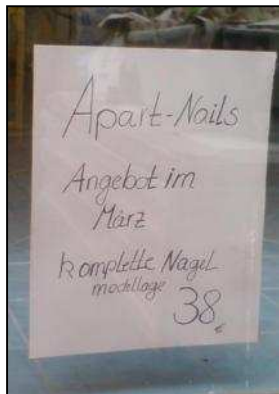 Apart-Nails
Angebot im
März
komplette Nagel
modllage
38 €